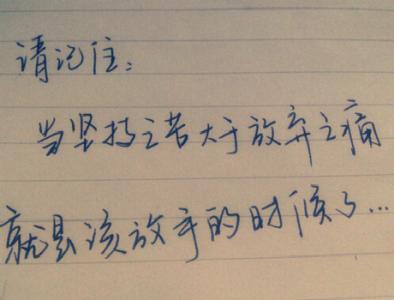 请记住：
当坚持之苦大于放弃之痛
就是该放手的时候了...